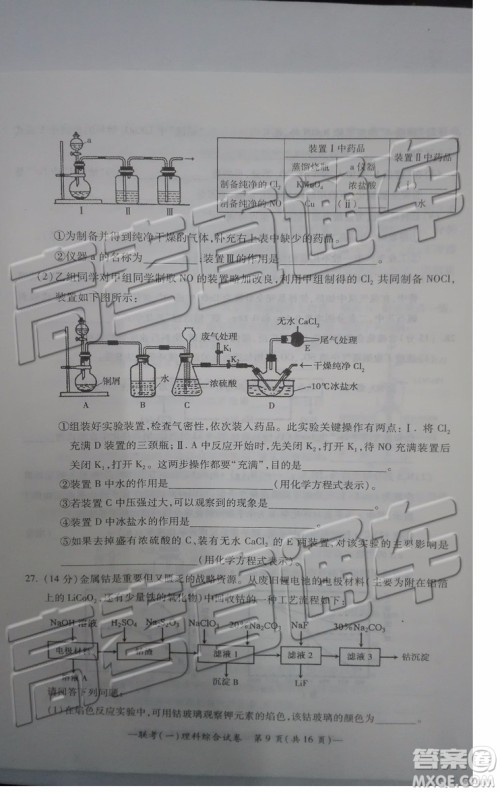 a
Ⅰ Ⅱ Ⅲ
装置Ⅰ中药品 装置Ⅱ中药品
蒸馏烧瓶 a仪器
制备纯净的 Cl₂ KMnO₄ 浓盐酸 (ⅰ)
制备纯净的 NO Cu (ⅱ) 水
①为制备并得到纯净干燥的气体,补充右上表中缺少的药品。
②仪器 a 的名称为________;装置Ⅲ的作用是________。
(2)乙组同学对甲组同学制取 NO 的装置略加改良,利用甲组制得的 Cl₂ 共同制备 NOCl,
装置如下图所示:
废气处理 无水 CaCl₂
K₁ K₂ E 尾气处理
干燥纯净 Cl₂
铜屑 水 浓硫酸 -10℃冰盐水
A B C D
①组装好实验装置,检查气密性,依次装入药品。此实验关键操作有两点:Ⅰ. 将 Cl₂
充满 D 装置的三颈瓶;Ⅱ. A 中反应开始时,先关闭 K₂,打开 K₁,待 NO 充满 C 后关闭
K₁,打开 K₂。这两步操作都要“充满”,目的是________。
②装置 B 中水的作用是________(用化学方程式表示)。
③若装置 C 中压强过大,可以观察到的现象是________。
④装置 D 中冰盐水的作用是________。
⑤如果去掉盛有浓硫酸的 C、装有无水 CaCl₂ 的 E 两装置,对该实验的主要影响是
________(用化学方程式表示)。
27. (14 分)金属钴是重要但又匮乏的战略资源。从废旧锂电池的电极材料(主要为附在铝箔
上的 LiCoO₂,还有少量铁的氧化物)中回收钴的一种工艺流程如下:
NaOH 溶液 H₂SO₄ Na₂S₂O₃ NaClO₃ 20%Na₂CO₃ NaF 30%Na₂CO₃
电极材料 钴渣 滤液 1 滤液 2 滤液 3 钴沉淀
滤液 A 沉淀 B LiF
请回答下列问题:
(1)在焰色反应实验中,可用钴玻璃观察钾元素的焰色,该钴玻璃的颜色为________。
—联考(一)理科综合试卷 第 9 页(共 16 页)—
高考直通车
高考直通车
答案圈
MXQE.COM